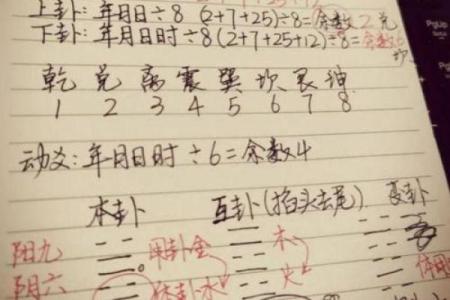 上卦：年月日÷8 (2+7+25)÷8=余数2 兑
下卦：年月日时÷8(2+7+25+12)÷8=余数6 坎
乾 兑 离 震 巽 坎 艮 坤
1 2 3 4 5 6 7 8
动爻：年月日时÷6=余数4
本卦 互卦(掐头去尾) 变卦
阳九 用卦金 木
阴六 体卦水 火 体用
PgUp